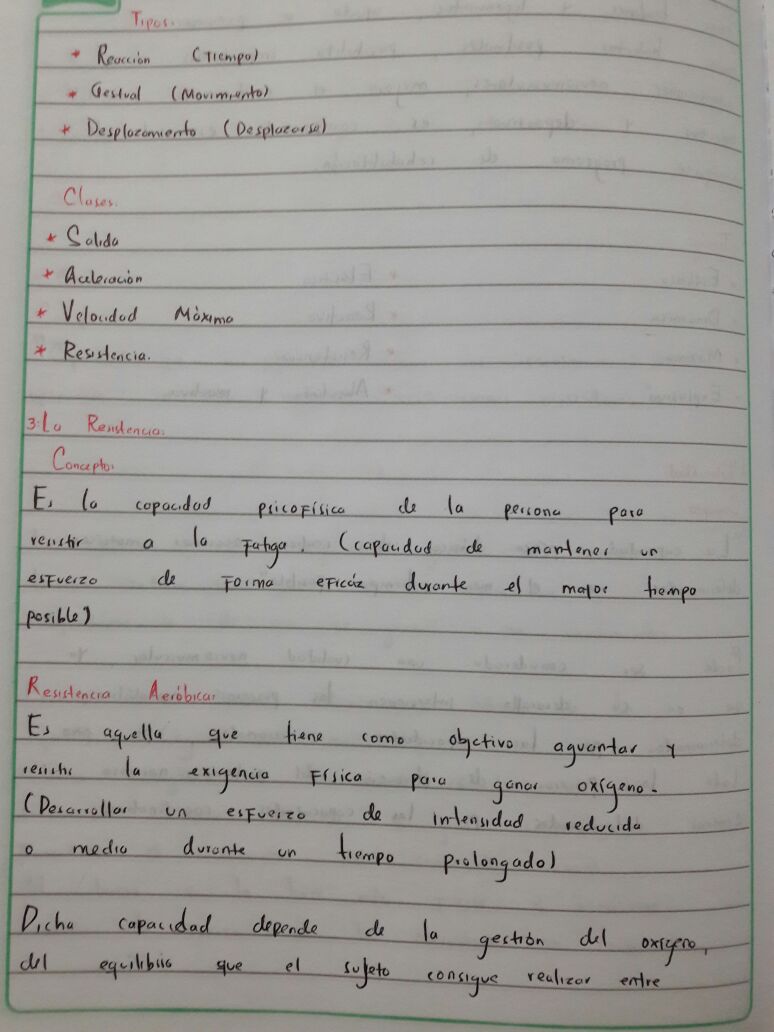 Tipos.
* Reacción (Tiempo)
* Gestual (Movimiento)
* Desplazamiento (Desplazarse)
Clases.
* Salida
* Aceleración
* Velocidad Máxima
* Resistencia.
3. La Resistencia.
Concepto.
Es la capacidad psicofísica de la persona para
resistir a la fatiga. (capacidad de mantener un
esfuerzo de forma eficáz durante el mayor tiempo
posible)
Resistencia Aeróbica.
Es aquella que tiene como objetivo aguantar y
resistir la exigencia física para ganar oxígeno.
(Desarrollar un esfuerzo de intensidad reducida
o media durante un tiempo prolongado)
Dicha capacidad depende de la gestión del oxígeno,
del equilibrio que el sujeto consigue realizar entre